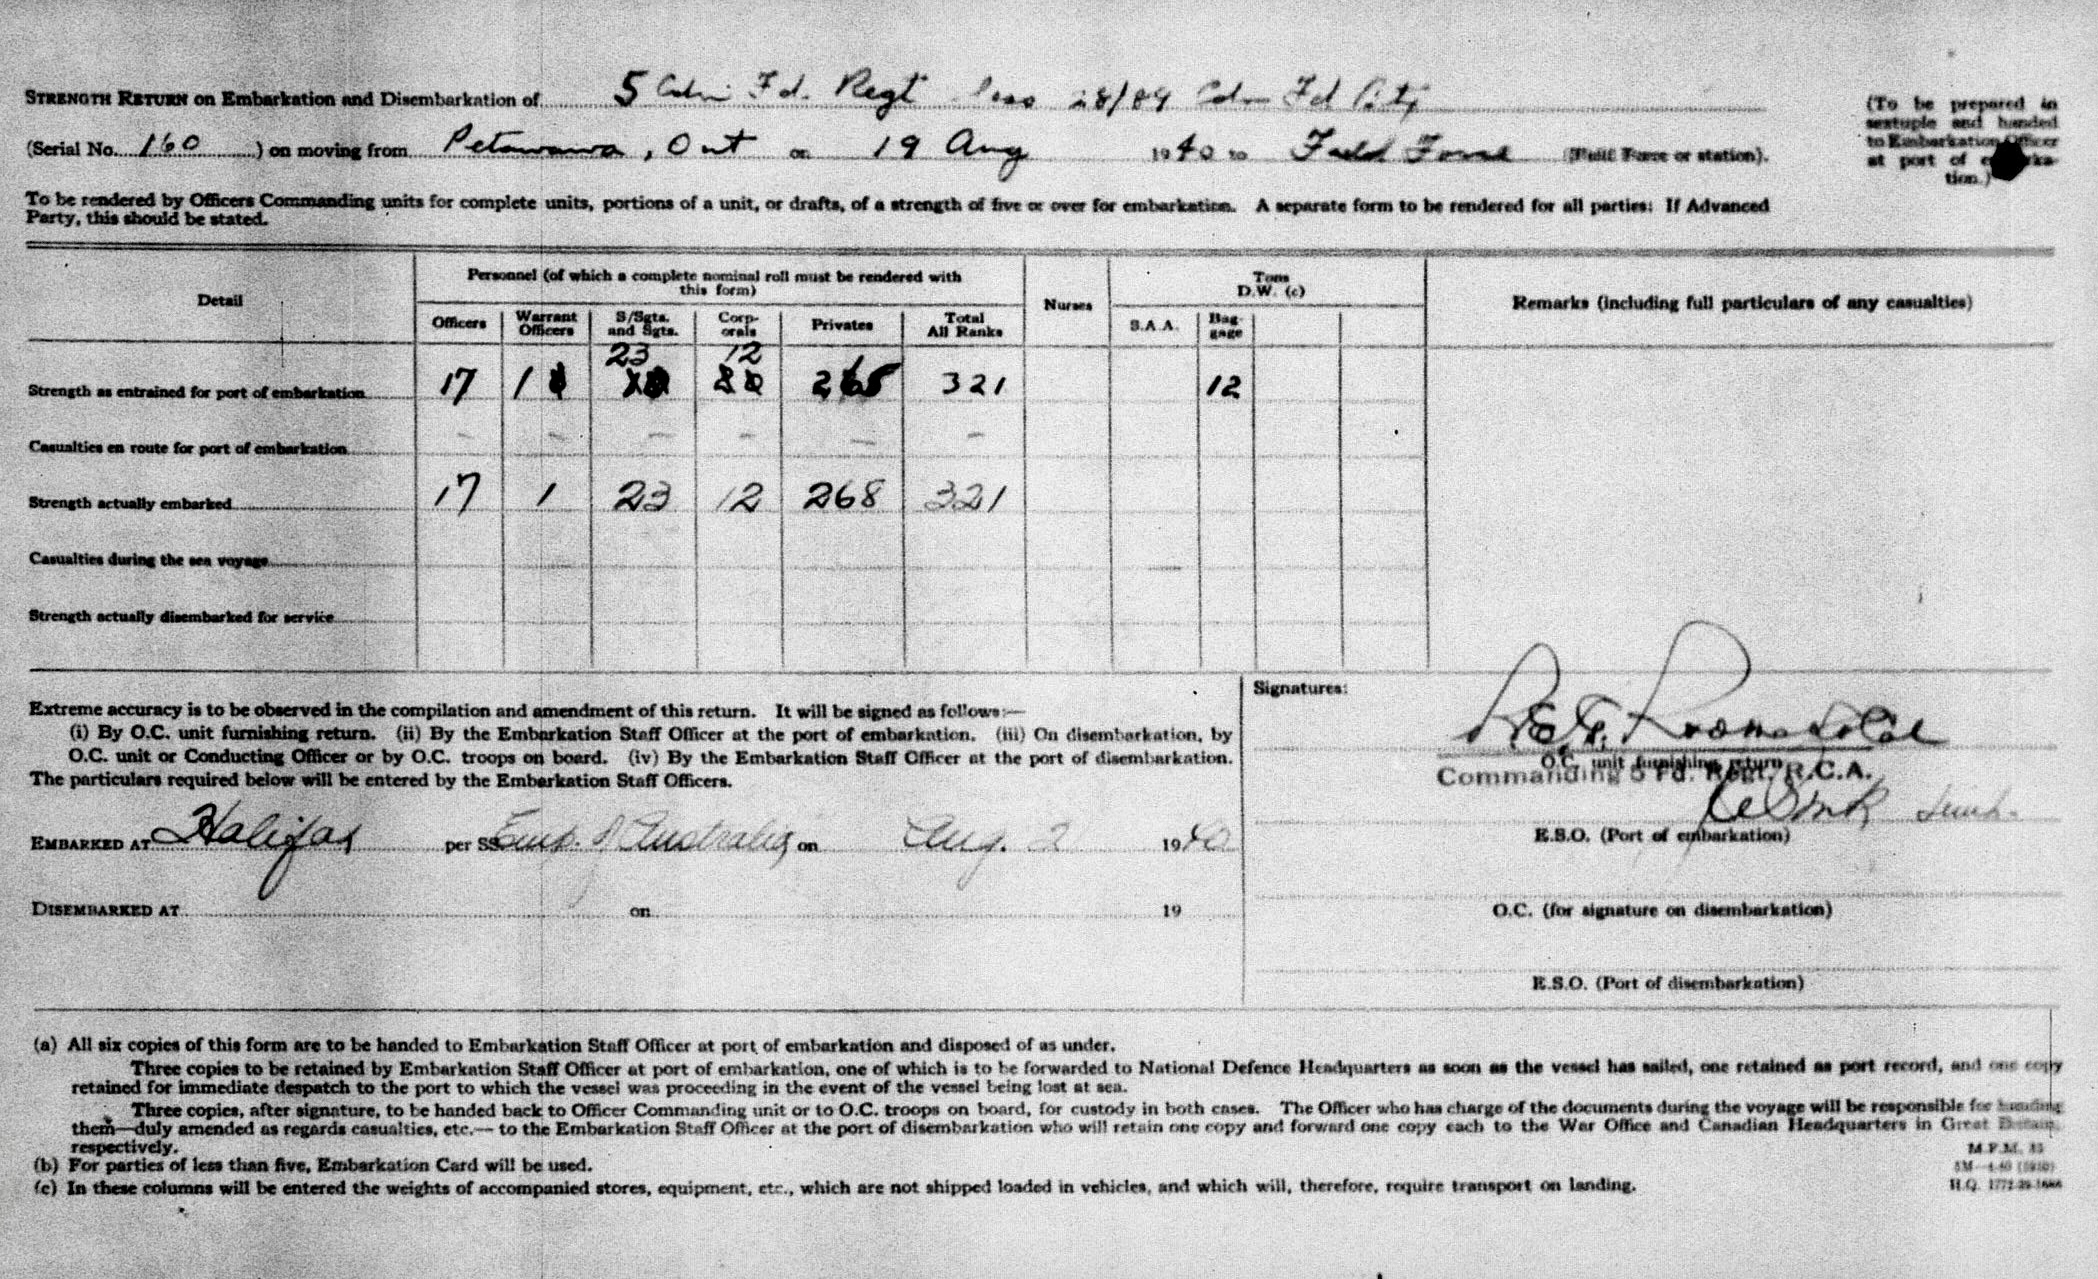 STRENGTH RETURN on Embarkation and Disembarkation of 5 Cdn Fd. Regt less 28/89 Cdn Fd Bty
(Serial No. 160 ) on moving from Petawawa, Ont on 19 Aug 1940 to Field Force (Field Force or station).
(To be prepared in
sextuple and handed
to Embarkation Officer
at port of embarka-
tion.)
To be rendered by Officers Commanding units for complete units, portions of a unit, or drafts, of a strength of five or over for embarkation. A separate form to be rendered for all parties: If Advanced
Party, this should be stated.
Detail
Personnel (of which a complete nominal roll must be rendered with
this form)
Nurses
Tons
D.W. (c)
Remarks (including full particulars of any casualties)
Officers Warrant Officers S/Sgts. and Sgts. Corp-orals Privates Total All Ranks S.A.A. Bag-gage
23 12
Strength as entrained for port of embarkation 17 1 321 12
Casualties en route for port of embarkation – – – – – –
Strength actually embarked 17 1 23 12 268 321
Casualties during the sea voyage
Strength actually disembarked for service
Extreme accuracy is to be observed in the compilation and amendment of this return. It will be signed as follows:—
(i) By O.C. unit furnishing return. (ii) By the Embarkation Staff Officer at the port of embarkation. (iii) On disembarkation, by
O.C. unit or Conducting Officer or by O.C. troops on board. (iv) By the Embarkation Staff Officer at the port of disembarkation.
The particulars required below will be entered by the Embarkation Staff Officers.
EMBARKED AT Halifax per SS Emp. of Australia on Aug. 2 1940
DISEMBARKED AT on 19
Signatures:
O.C. unit furnishing return
Commanding 5 Fd. Regt. R.C.A.
E.S.O. (Port of embarkation)
O.C. (for signature on disembarkation)
E.S.O. (Port of disembarkation)
(a) All six copies of this form are to be handed to Embarkation Staff Officer at port of embarkation and disposed of as under.
Three copies to be retained by Embarkation Staff Officer at port of embarkation, one of which is to be forwarded to National Defence Headquarters as soon as the vessel has sailed, one retained as port record, and one copy
retained for immediate despatch to the port to which the vessel was proceeding in the event of the vessel being lost at sea.
Three copies, after signature, to be handed back to Officer Commanding unit or to O.C. troops on board, for custody in both cases. The Officer who has charge of the documents during the voyage will be responsible for handing
them—duly amended as regards casualties, etc.— to the Embarkation Staff Officer at the port of disembarkation who will retain one copy and forward one copy each to the War Office and Canadian Headquarters in Great Britain,
respectively.
(b) For parties of less than five, Embarkation Card will be used.
(c) In these columns will be entered the weights of accompanied stores, equipment, etc., which are not shipped loaded in vehicles, and which will, therefore, require transport on landing.
M.F.M. 35
H.Q. 1772-39-1686